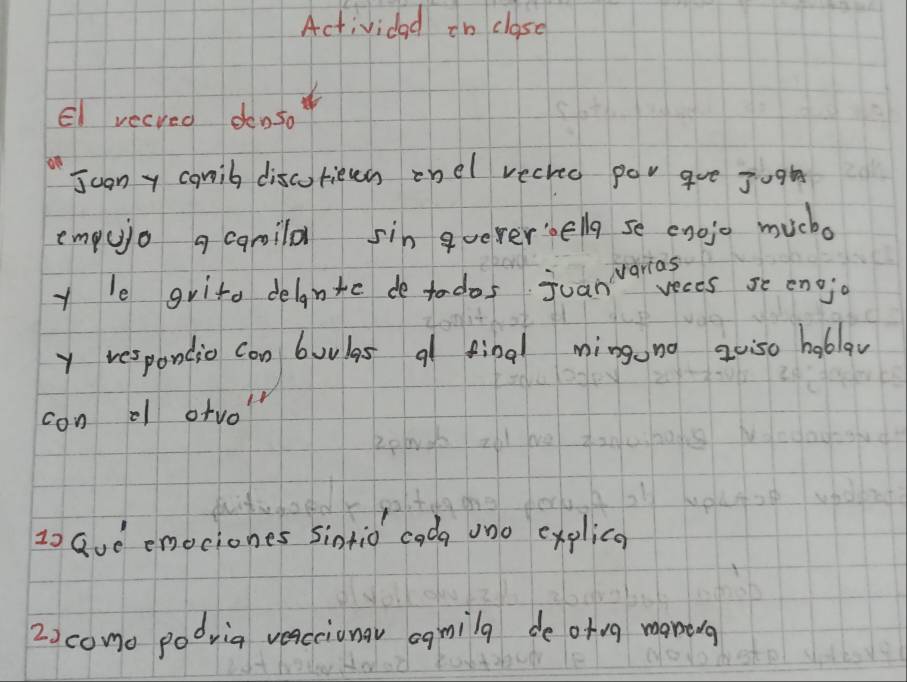 Actividad en clase
El recreo denso
"Juan y camila discutieron en el recreo por que Juan
empujo a camila sin querer ella se enojo mucho
y le grito delante de todos. Juan varias veces se enojo
y respondio con burlas al final ninguno quiso hablar
con el otro"
1) Qué emociones sintió cada uno explica
2) como podria reaccionar camila de otra manera